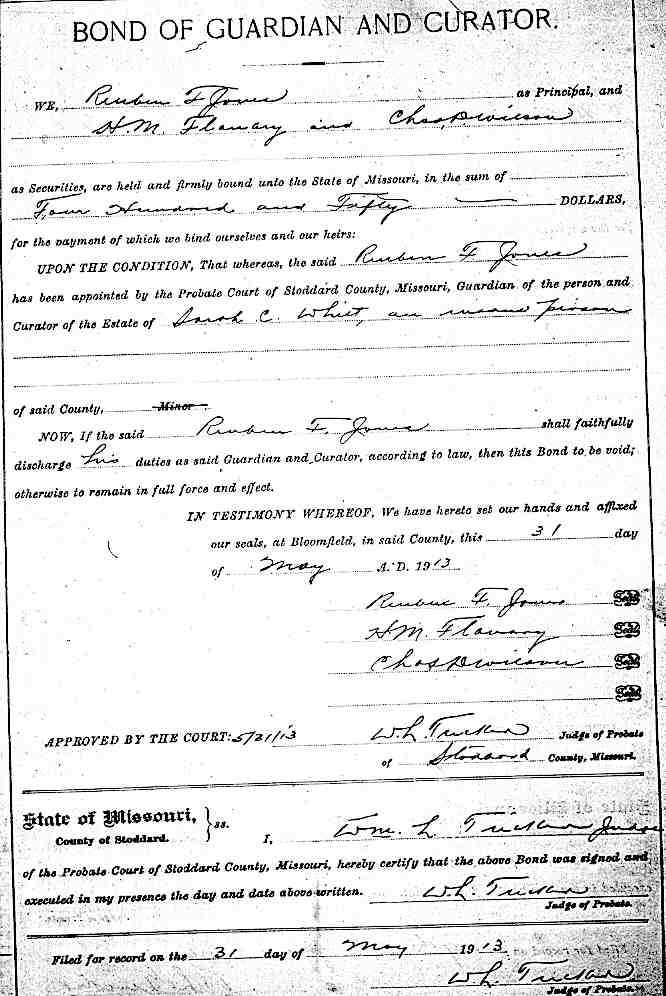 BOND OF GUARDIAN AND CURATOR.
WE, Reuben F Jones as Principal, and
H.M. Flanary and Chas D Wilson
as Securities, are held and firmly bound unto the State of Missouri, in the sum of
Four Hundred and Fifty DOLLARS,
for the payment of which we bind ourselves and our heirs:
UPON THE CONDITION, That whereas, the said Reuben F Jones
has been appointed by the Probate Court of Stoddard County, Missouri, Guardian of the person and
Curator of the Estate of Sarah C. Whitt, an insane person
of said County, Minor.
NOW, If the said Reuben F. Jones shall faithfully
discharge his duties as said Guardian and Curator, according to law, then this Bond to be void;
otherwise to remain in full force and effect.
IN TESTIMONY WHEREOF, We have hereto set our hands and affixed
our seals, at Bloomfield, in said County, this 31 day
of May A.D. 1913
Reuben F. Jones Seal
H.M. Flanary Seal
Chas D Wilson Seal
Seal
APPROVED BY THE COURT: 5/31/13 W L Tucker Judge of Probate
of Stoddard County, Missouri.
State of Missouri, } ss.
County of Stoddard. I, Wm. L Tucker Judge
of the Probate Court of Stoddard County, Missouri, hereby certify that the above Bond was signed and
executed in my presence the day and date above written. W.L. Tucker
Judge of Probate.
Filed for record on the 31 day of May 1913
W L Tucker
Judge of Probate.